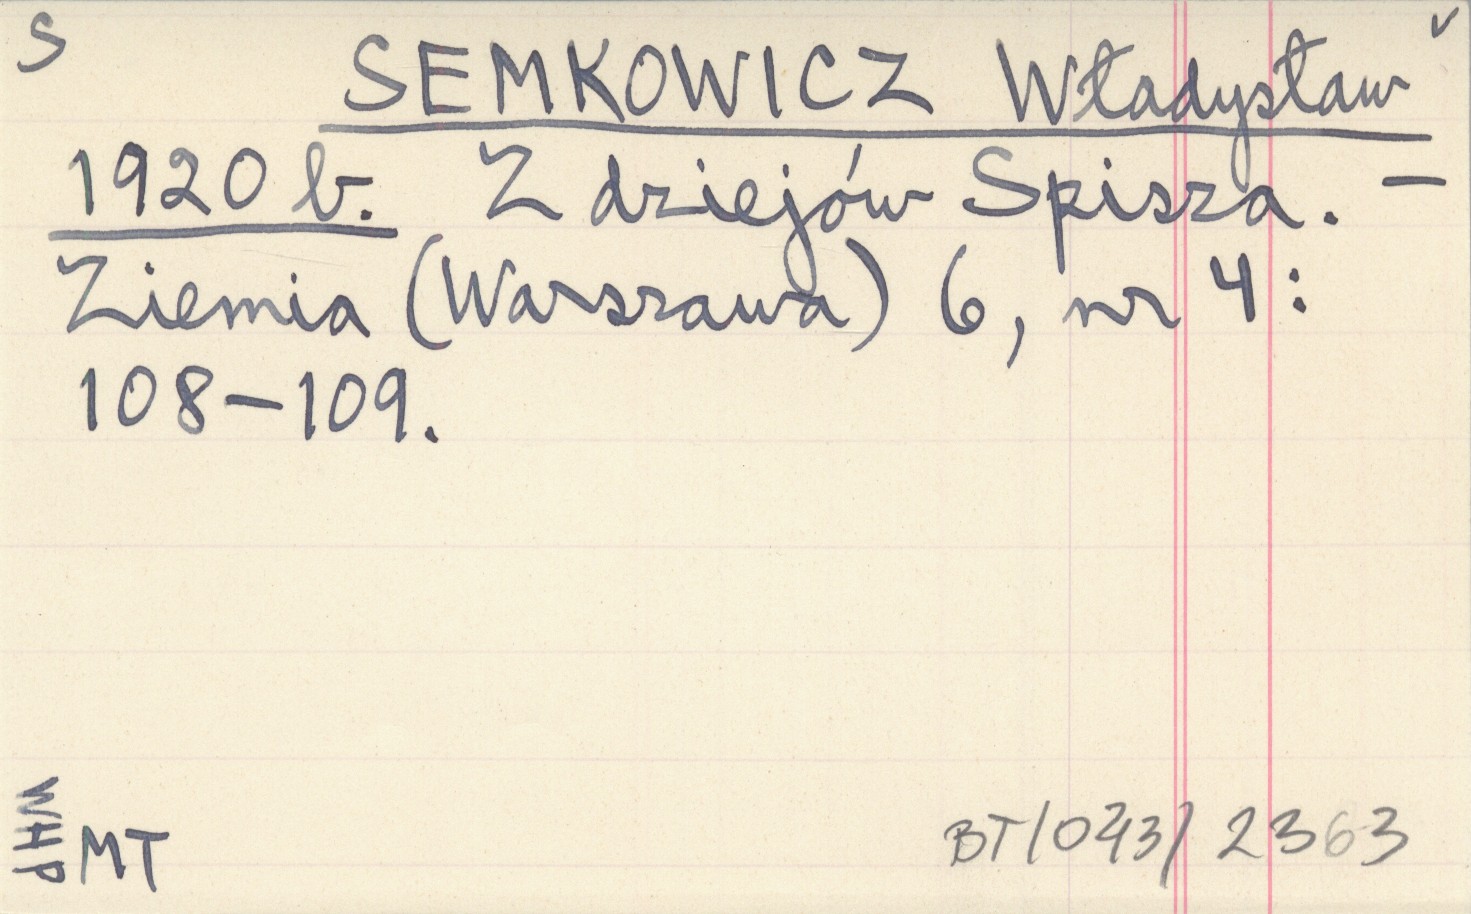 S
SEMKOWICZ Władysław
1920 b. Z dziejów Spisza. —
Ziemia (Warszawa) 6, nr 4:
108-109.
WHP
MT
BT/043/ 2363